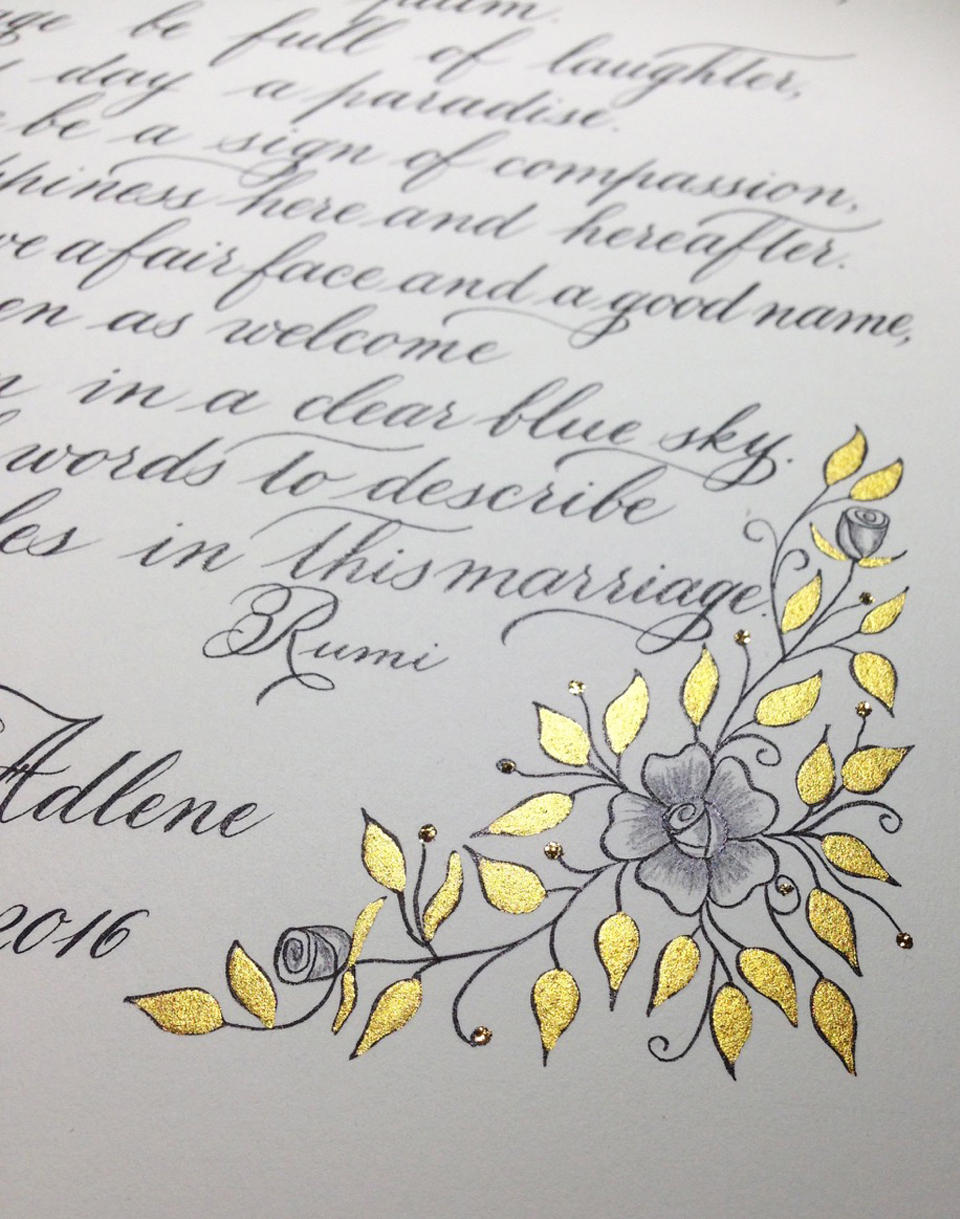 be full of laughter,
day a paradise.
be a sign of compassion,
here and hereafter.
a fair face and a good name,
as welcome
in a clear blue sky.
words to describe
in this marriage.
Rumi
Adlene
2016